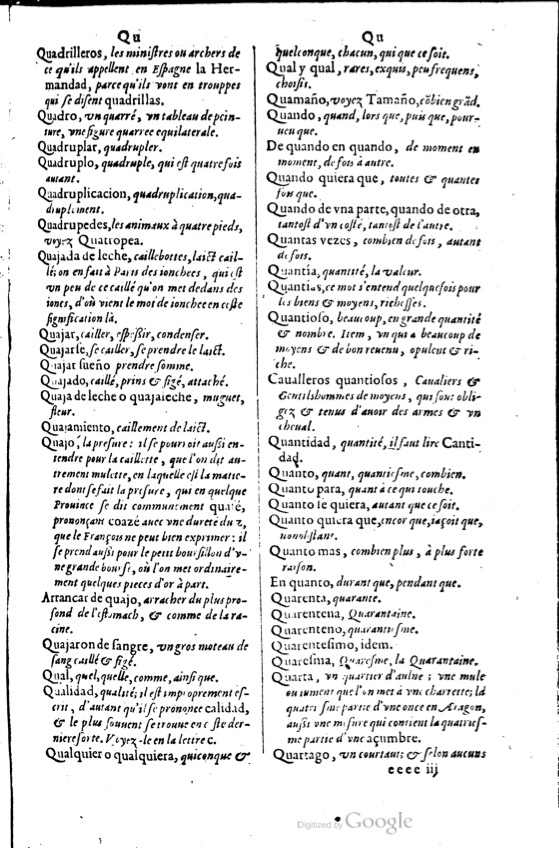 Qu
Quadrilleros, les ministres ou archers de
ce qu'ils appellent en Espagne la Her-
mandad, parce qu'ils vont en trouppes
qui se disent quadrillas.
Quadro, vn quarré, vn tableau de pein-
ture, vne figure quarree equilaterale.
Quadruplar, quadrupler.
Quadruplo, quadruple, qui est quatre fois
autant.
Quadruplicacion, quadruplication, qua-
druplement.
Quadrupedes, les animaux à quatre pieds,
voyez Quatropea.
Quajada de leche, caillebottes, laict cail-
lé; on en fait à Paris des ionchees, qui est
vn peu de ce caillé qu'on met dedans des
ioncs, d'où vient le mot de ionchee en ceste
signification là.
Quajar, cailler, espessir, condenser.
Quajarse, se cailler, se prendre le laict.
Quajar sueño prendre somme.
Quajado, caillé, prins & figé, attaché.
Quaja de leche o quajaleche, muguet,
fleur.
Quajamiento, caillement de laict.
Quajo, la presure: il se pourroit aussi en-
tendre pour la caillette, que l'on dit au-
trement mulette, en laquelle est la matie-
re dont se fait la presure, qui en quelque
Prouince se dit communement
prononçant coazé auec vne dureté du z,
que le François ne peut bien exprimer: il
se prend aussi pour le petit boursillon d'v-
ne grande bourse, où l'on met ordinaire-
ment quelques pieces d'or à part.
Arrancar de quajo, arracher du plus pro-
fond de l'estomach, & comme de la ra-
cine.
Quajaron de sangre, vn gros moteau de
sang caillé & figé.
Qual, quel, quelle, comme, ainsi que.
Qualidad, qualité; il est improprement es-
crit, d'autant qu'il se prononce calidad,
& le plus souuent se trouue en ceste der-
niere sorte. Voyez-le en la lettre c.
Qualquier o qualquiera, quiconque &
Qu
quelconque, chacun, qui que ce soit.
Qual y qual, rares, exquis, peu frequens,
choisis.
Quamaño, voyez Tamaño, cõbien grãd.
Quando, quand, lors que, puis que, pour-
ueu que.
De quando en quando, de moment en
moment, de fois à autre.
Quando quiera que, toutes & quantes
fois que.
Quando de vna parte, quando de otra,
tantost d'vn costé, tantost de l'autre.
Quantas vezes, combien de fois, autant
de fois.
Quantia, quantité, la valeur.
Quantias, ce mot s'entend quelquesfois pour
les biens & moyens, richesses.
Quantioso, beaucoup, en grande quantité
& nombre. Item, vn qui a beaucoup de
moyens & de bon reuenu, opulent & ri-
che.
Caualleros quantiosos, Caualiers &
Gentilshommes de moyens, qui sont obli-
gez & tenus d'auoir des armes & vn
cheual.
Quantidad, quantité, il faut lire Canti-
dad.
Quanto, quant, quantiesme, combien.
Quanto para, quant à ce qui touche.
Quanto se quiera, autant que ce soit.
Quanto quiera que, encor que, iaçoit que,
nonobstant.
Quanto mas, combien plus, à plus forte
raison.
En quanto, durant que, pendant que.
Quarenta, quarante.
Quarentena, Quarantaine.
Quarenteno, quarantiesme.
Quarentesimo, idem.
Quaresma, Quaresme, la Quarantaine.
Quarta, vn quartier d'aulne; vne mule
ou iument que l'on met à vne charrette; la
quatriesme partie d'vne once en Aragon,
aussi vne mesure qui contient la quatries-
me partie d'vne açumbre.
Quartago, vn courtaut; & selon aucuns
eeee iij
Digitized by Google